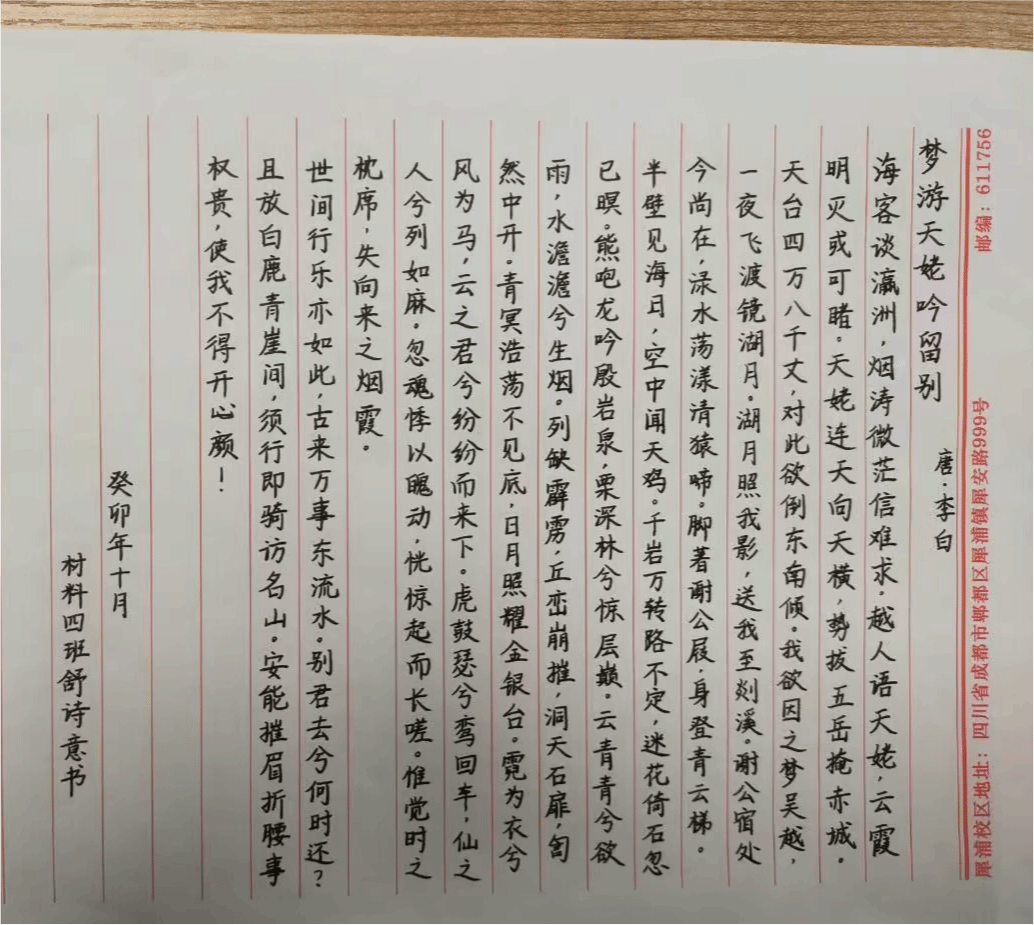 犀浦校区地址：四川省成都市郫都区犀浦镇犀安路999号 邮编：611756
梦游天姥吟留别
唐·李白
海客谈瀛洲，烟涛微茫信难求。越人语天姥，云霞
明灭或可睹。天姥连天向天横，势拔五岳掩赤城。
天台四万八千丈，对此欲倒东南倾。我欲因之梦吴越，
一夜飞渡镜湖月。湖月照我影，送我至剡溪。谢公宿处
今尚在，渌水荡漾清猿啼。脚著谢公屐，身登青云梯。
半壁见海日，空中闻天鸡。千岩万转路不定，迷花倚石忽
已暝。熊咆龙吟殷岩泉，栗深林兮惊层巅。云青青兮欲
雨，水澹澹兮生烟。列缺霹雳，丘峦崩摧，洞天石扉，訇
然中开。青冥浩荡不见底，日月照耀金银台。霓为衣兮
风为马，云之君兮纷纷而来下。虎鼓瑟兮鸾回车，仙之
人兮列如麻。忽魂悸以魄动，恍惊起而长嗟。惟觉时之
枕席，失向来之烟霞。
世间行乐亦如此，古来万事东流水。别君去兮何时还？
且放白鹿青崖间，须行即骑访名山。安能摧眉折腰事
权贵，使我不得开心颜！
癸卯年十月
材料四班舒诗意书